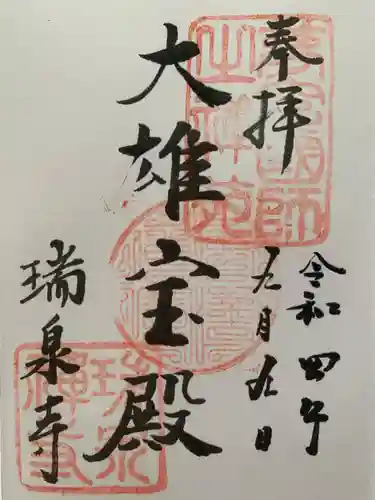 奉拝
令和四年
九月九日
大雄宝殿
瑞泉寺